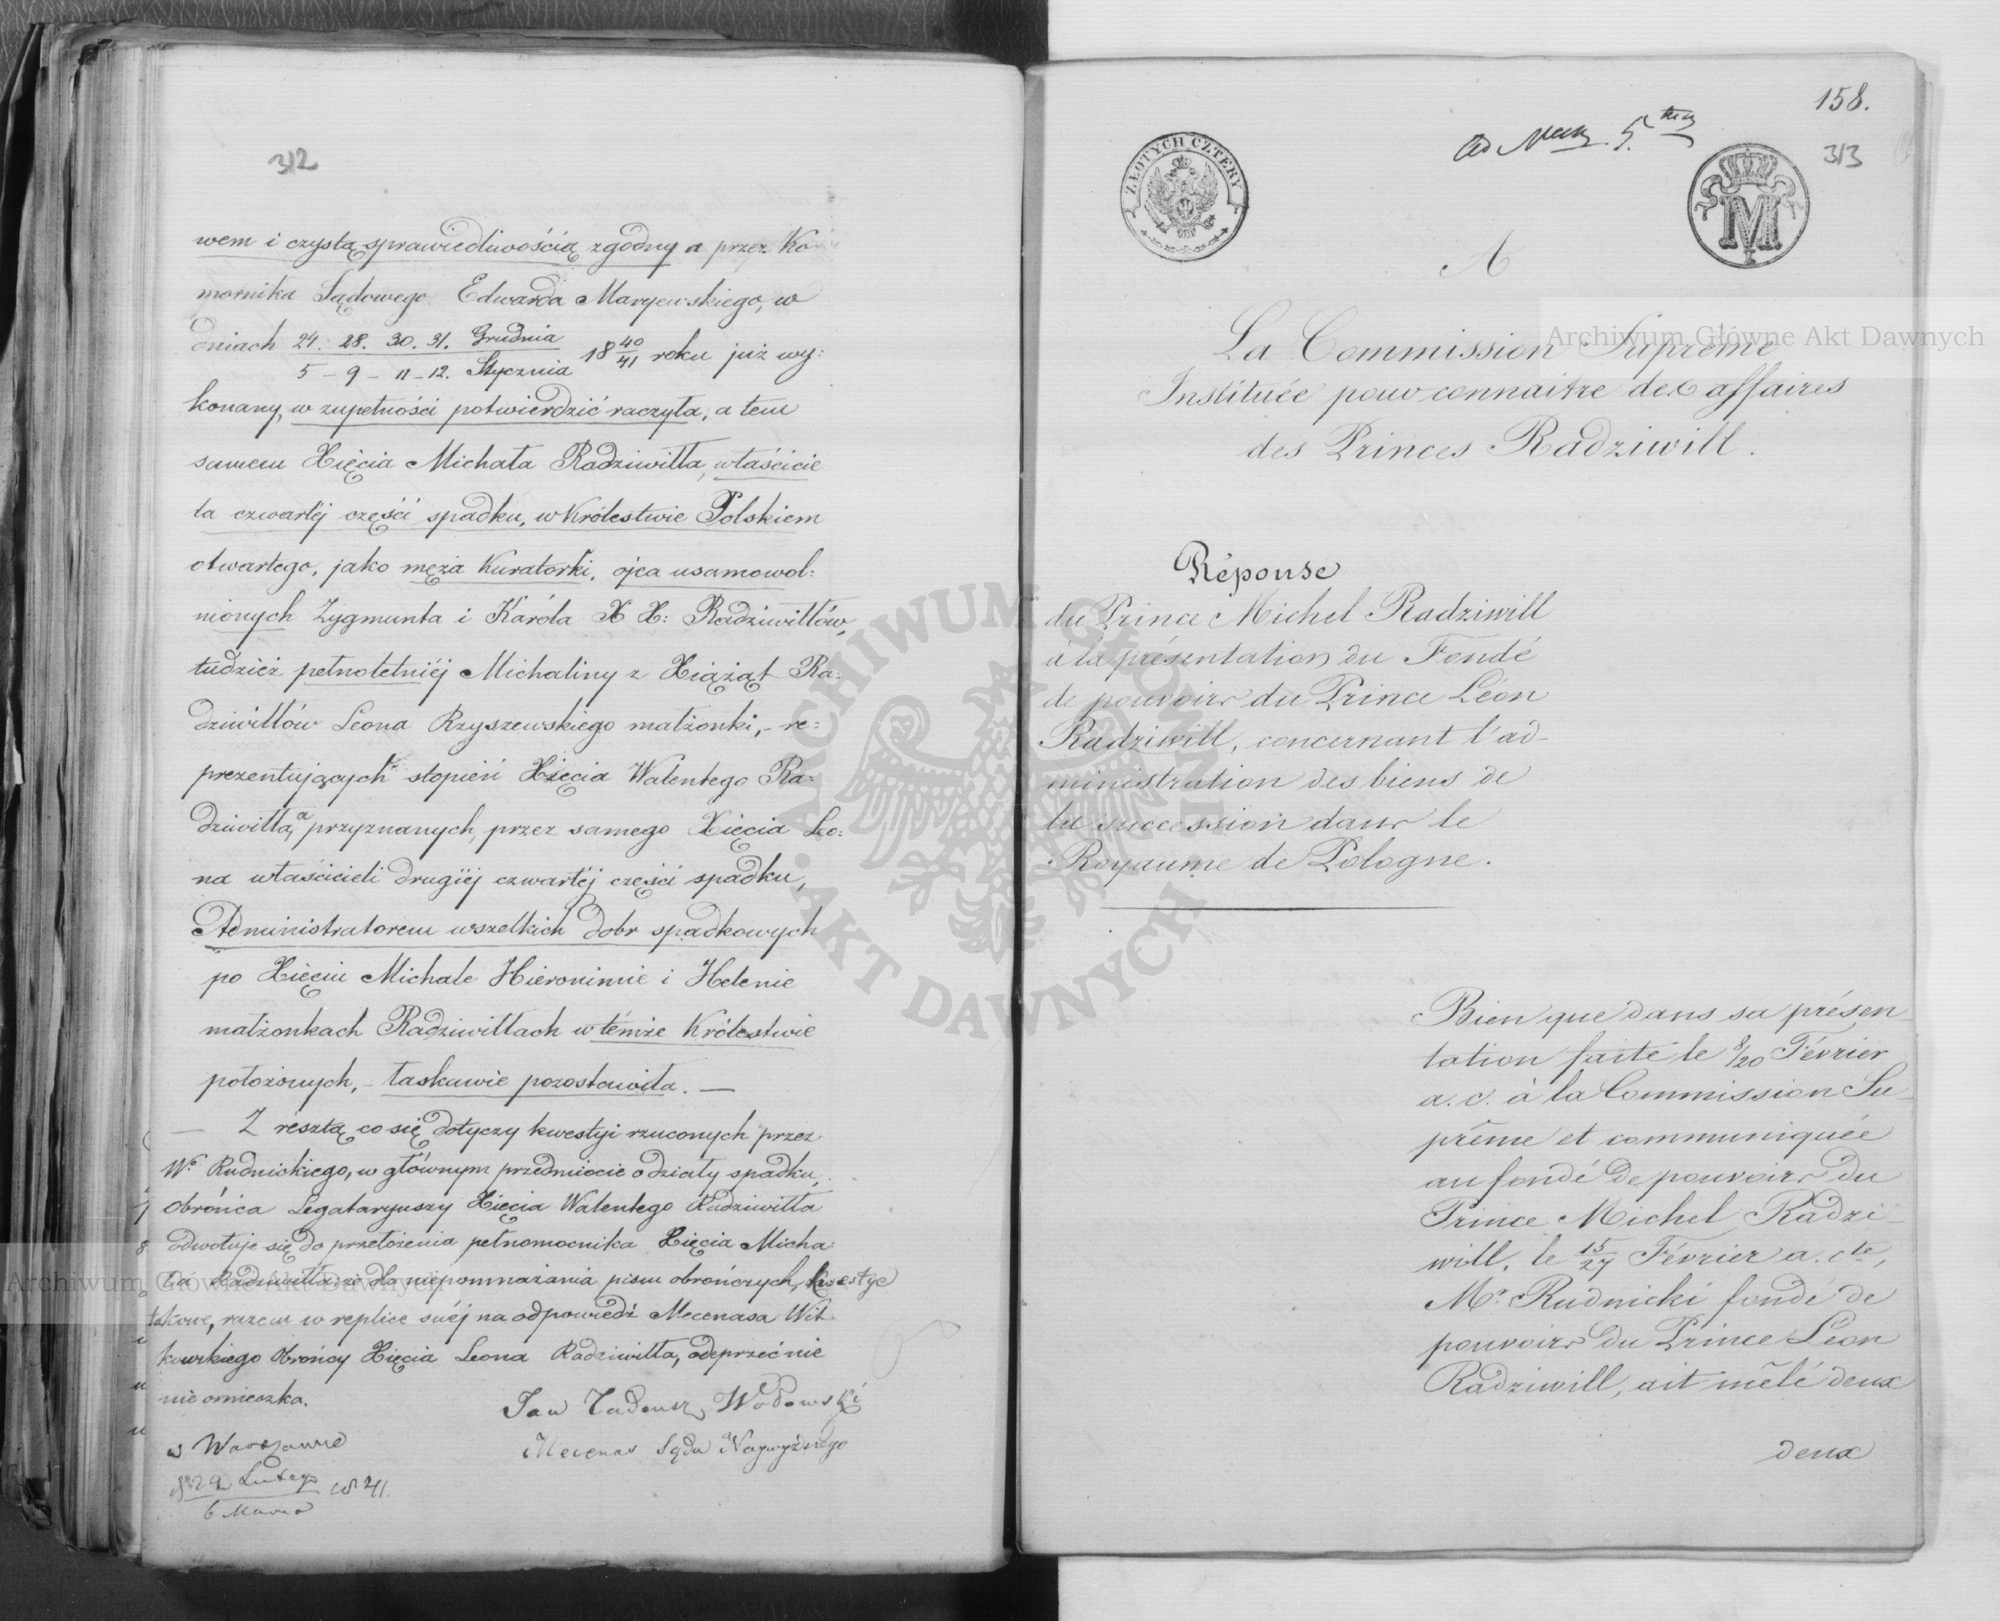 312
wem i czystą sprawiedliwością zgodny a przez Ko
mornika Sądowego Edwarda Maryewskiego, w
dniach 24. 28. 30. 31. Grudnia
5 – 9 – 11 – 12. Stycznia 18 40/41 roku już wy:
konany, w zupełności potwierdzić raczyła, a tem
samem Xięcia Michała Radziwiłła, właścicie
la czwartéj części spadku, w Królestwie Polskiem
otwartego, jako męża Kuratorki, ojca usamowol:
nionych Zygmunta i Karóla X X: Radziwiłłów,
tudzież pełnoletniéj Michaliny z Xiążąt Ra:
dziwiłłów Leona Rzyszewskiego małżonki, – re:
prezentujących stopień Xięcia Walentego Ra:
dziwiłła, a przyznanych, przez samego Xięcia Leo:
na właścicieli drugiéj czwartéj części spadku,
Administratorem wszelkich dobr spadkowych
po Xięciu Michale Hieronimie i Helenie
małżonkach Radziwiłłach w témże Królestwie
położonych, – łaskawie pozostawiła. —
— Z resztą co się dotyczy kwestyi rzuconych przez
Wo Rudnickiego, w głównym przedmiocie o działy spadku,
obrońca Legataryuszy Xięcia Walentego Radziwiłła
odwołuje się do przełożenia pełnomocnika Xięcia Micha:
ła Radziwiłła, że dla niepomnażania pism obrończych, kwestye
takowe, razem w replice swéj na odpowiedź Mecenasa Wit:
kowskiego Obrońcy Xięcia Leona Radziwiłła, odeprzeć nie
nie omieszka.
Jan Tadeusz Wołowski
Mecenas Sądu Najwyższego
w Warszawie
Lutego
6 Marca 1841.
158.
ad Num. 5.
313
ZŁOTYCH CZTERY
M
A
La Commission Suprême
Instituée pour connaitre des affaires
des Princes Radziwill.
Réponse
du Prince Michel Radziwill
à la présentation du Fondé
de pouvoirs du Prince Léon
Radziwill, concernant l'ad-
ministration des biens de
la succession dans le
Royaume de Pologne.
Bien que dans sa présen
tation faite le 8/20 Février
a. c. à la Commission Su-
prême et communiquée
au fondé de pouvoirs du
Prince Michel Radzi
will, le 15/27 Février a. cte,
Mr. Rudnicki fondé de
pouvoirs du Prince Léon
Radziwill, ait mêlé deux
deux
Archiwum Główne Akt Dawnych
Archiwum Główne Akt Dawnych
ARCHIWUM GŁÓWNE AKT DAWNYCH